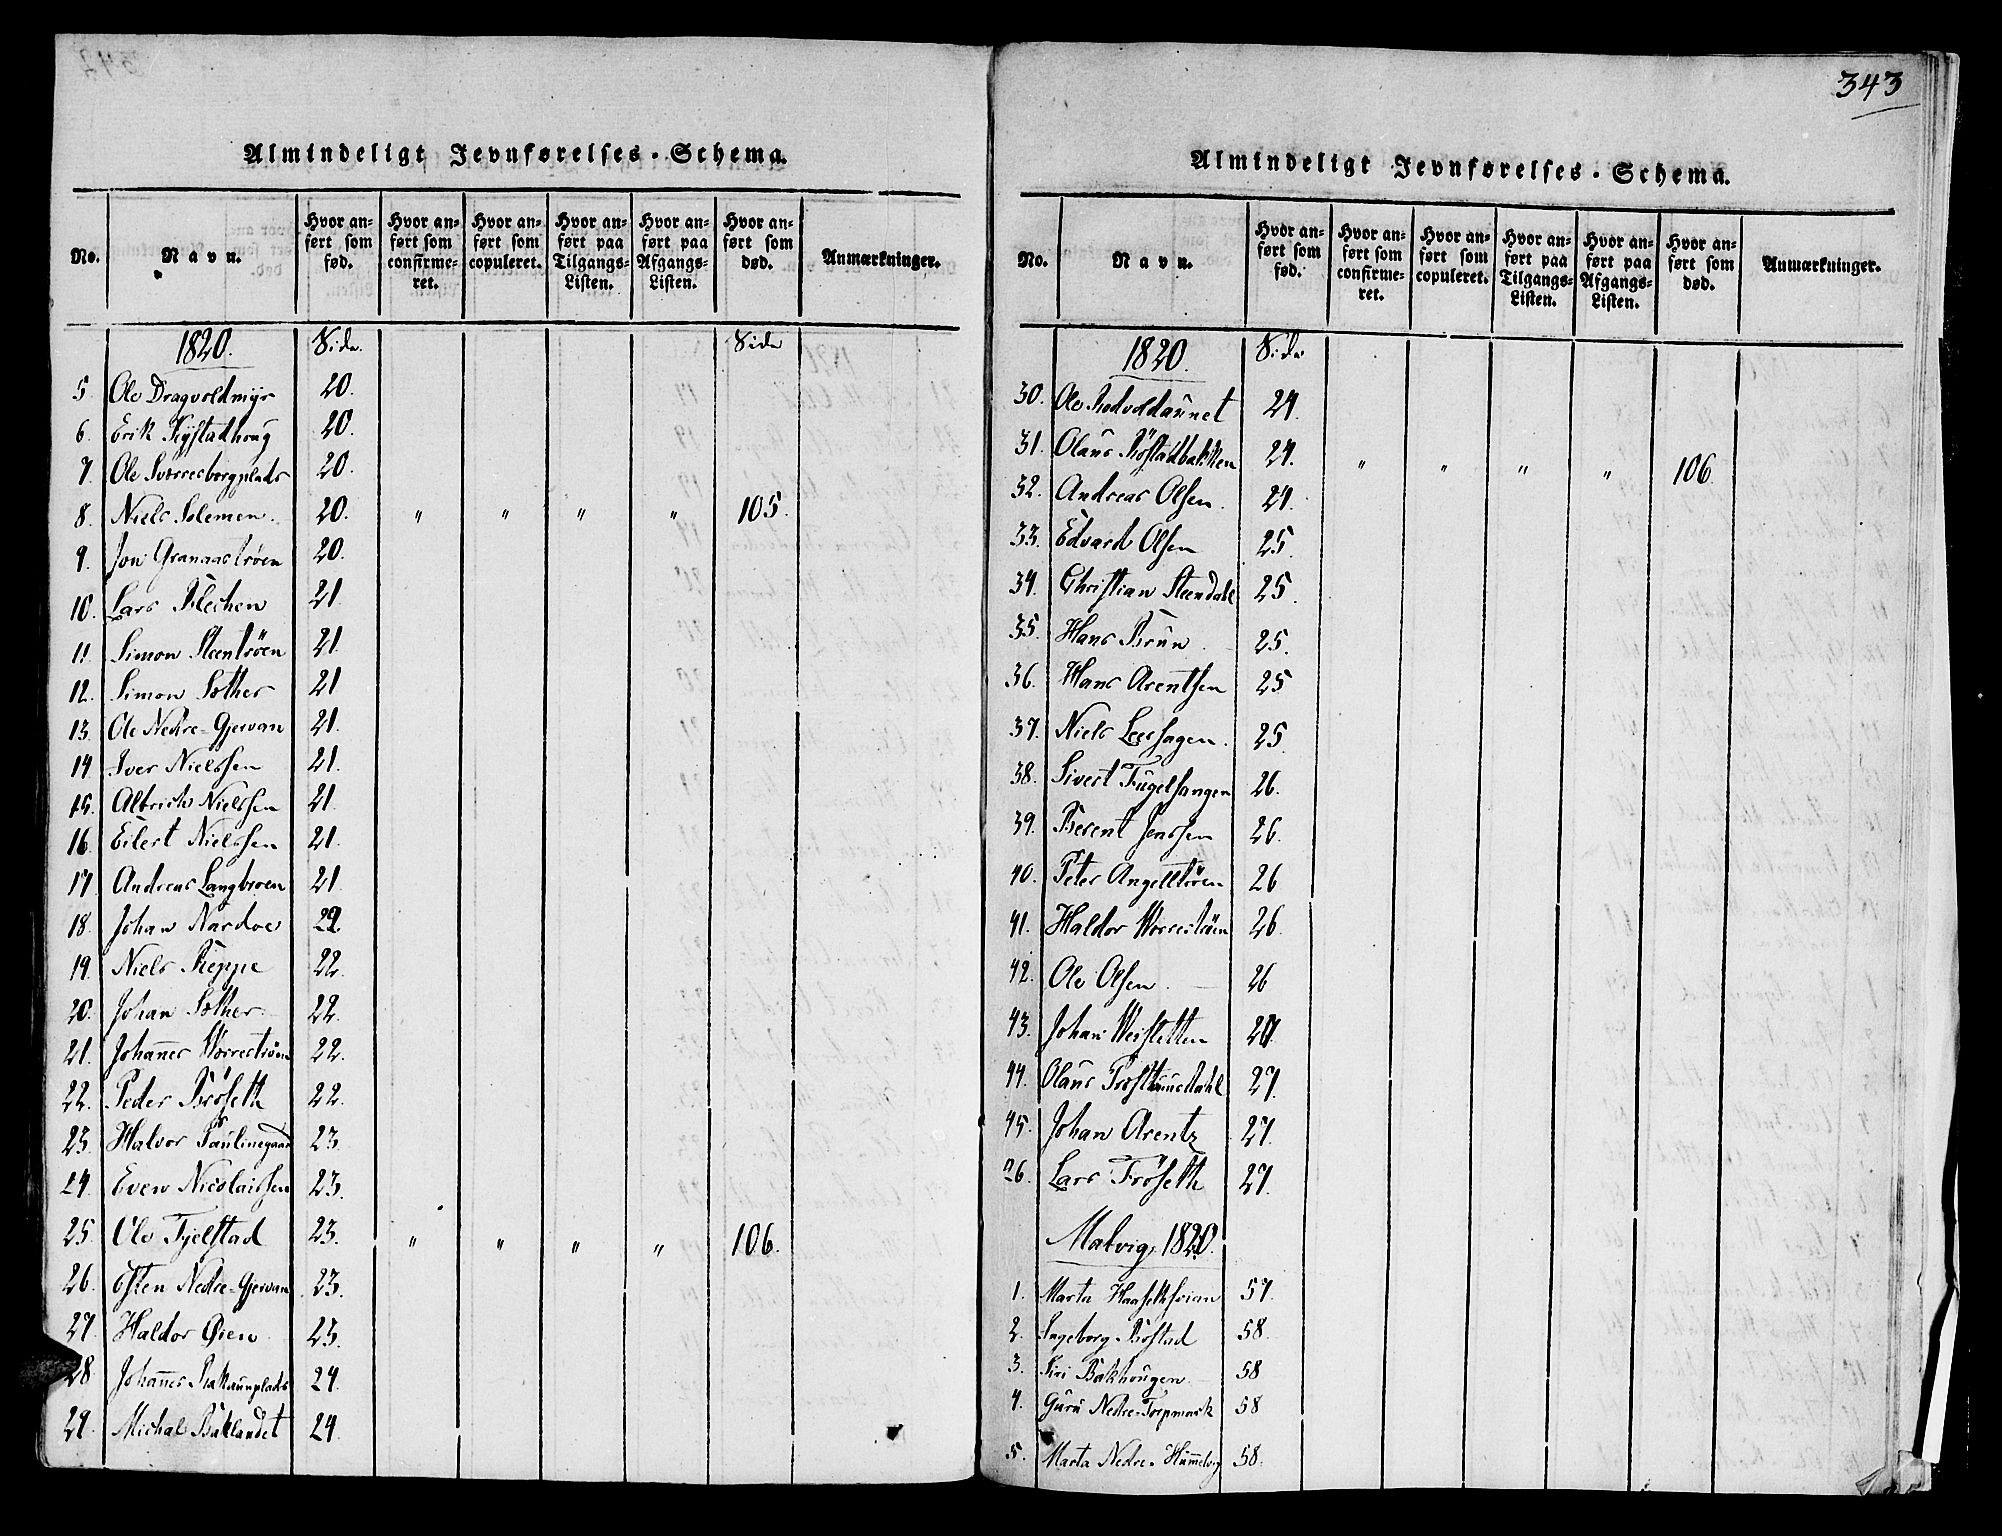 Almindeligt Jevnførelses-Schema.
No. Navn. Hvor anført som fød. Hvor anført som confirmeret. Hvor anført som copuleret. Hvor anført paa Tilgangs-Listen. Hvor anført paa Afgangs-Listen. Hvor anført som død. Anmærkninger.
1820. Side. Side
5 Ole Dragvoldmyr 20.
6. Erik Rystadhoug 20.
7. Ole Sverresborgplads 20.
8. Niels Solemen. 20. " " " " 105.
9. Jon Granaastrøen 20.
10. Lars Blechen 21
11. Simon Steentröen 21.
12. Simon Sother 21
13. Ole Nedre-Gjervan 21.
14 Iver Nielssen 21.
15. Albrich Nielssen 21.
16. Eilert Nielssen 21.
17. Andreas Langbroen 21
18. Johan Nardoe 22.
19. Niels Reppe 22.
20. Johan Sother. 22.
21. Johannes Worreströen 22.
22. Peder Bröseth 22.
23. Halvor Paulinegaard 23.
24. Even Nicolaissen 23.
25. Ole Fjelstad 23. " " " " 106.
26. Esten Nedre-Gjervan 23.
27. Haldor Øien 23.
28. Johannes Rakaunplads 24.
29. Michal Baklandet 24.
343
Almindeligt Jevnførelses-Schema.
No. Navn. Hvor anført som fød. Hvor anført som confirmeret. Hvor anført som copuleret. Hvor anført paa Tilgangs-Listen. Hvor anført paa Afgangs-Listen. Hvor anført som død. Anmærkninger.
1820. Side
30. Ole 24.
31. Olaus Röstadbakken 24. " " " " 106.
32. Andreas Olsen. 24.
33. Edvard Olsen 25.
34. Christian Steendahl 25.
35. Hans Brun 25.
36. Hans Arentsen 25
37. Niels Leeshagen. 25
38. Sivert Fugelsangen 26.
39. Berent Jenssen 26.
40. Peter Angelltröen 26
41. Haldor Worreströen 26.
42. Ole Olsen 26
43. Johan Weisletten 27.
44. Olaus 27.
45. Johan Arentz 27.
26. Lars Fröseth 27.
Malvig, 1820.
1. Marta 57.
2. Ingeborg Bostad 58.
3. Siri Bakhougen 58
4. Guru Nedre-Torpmark 58
5. Marta Nedre-Hummelvig 58.